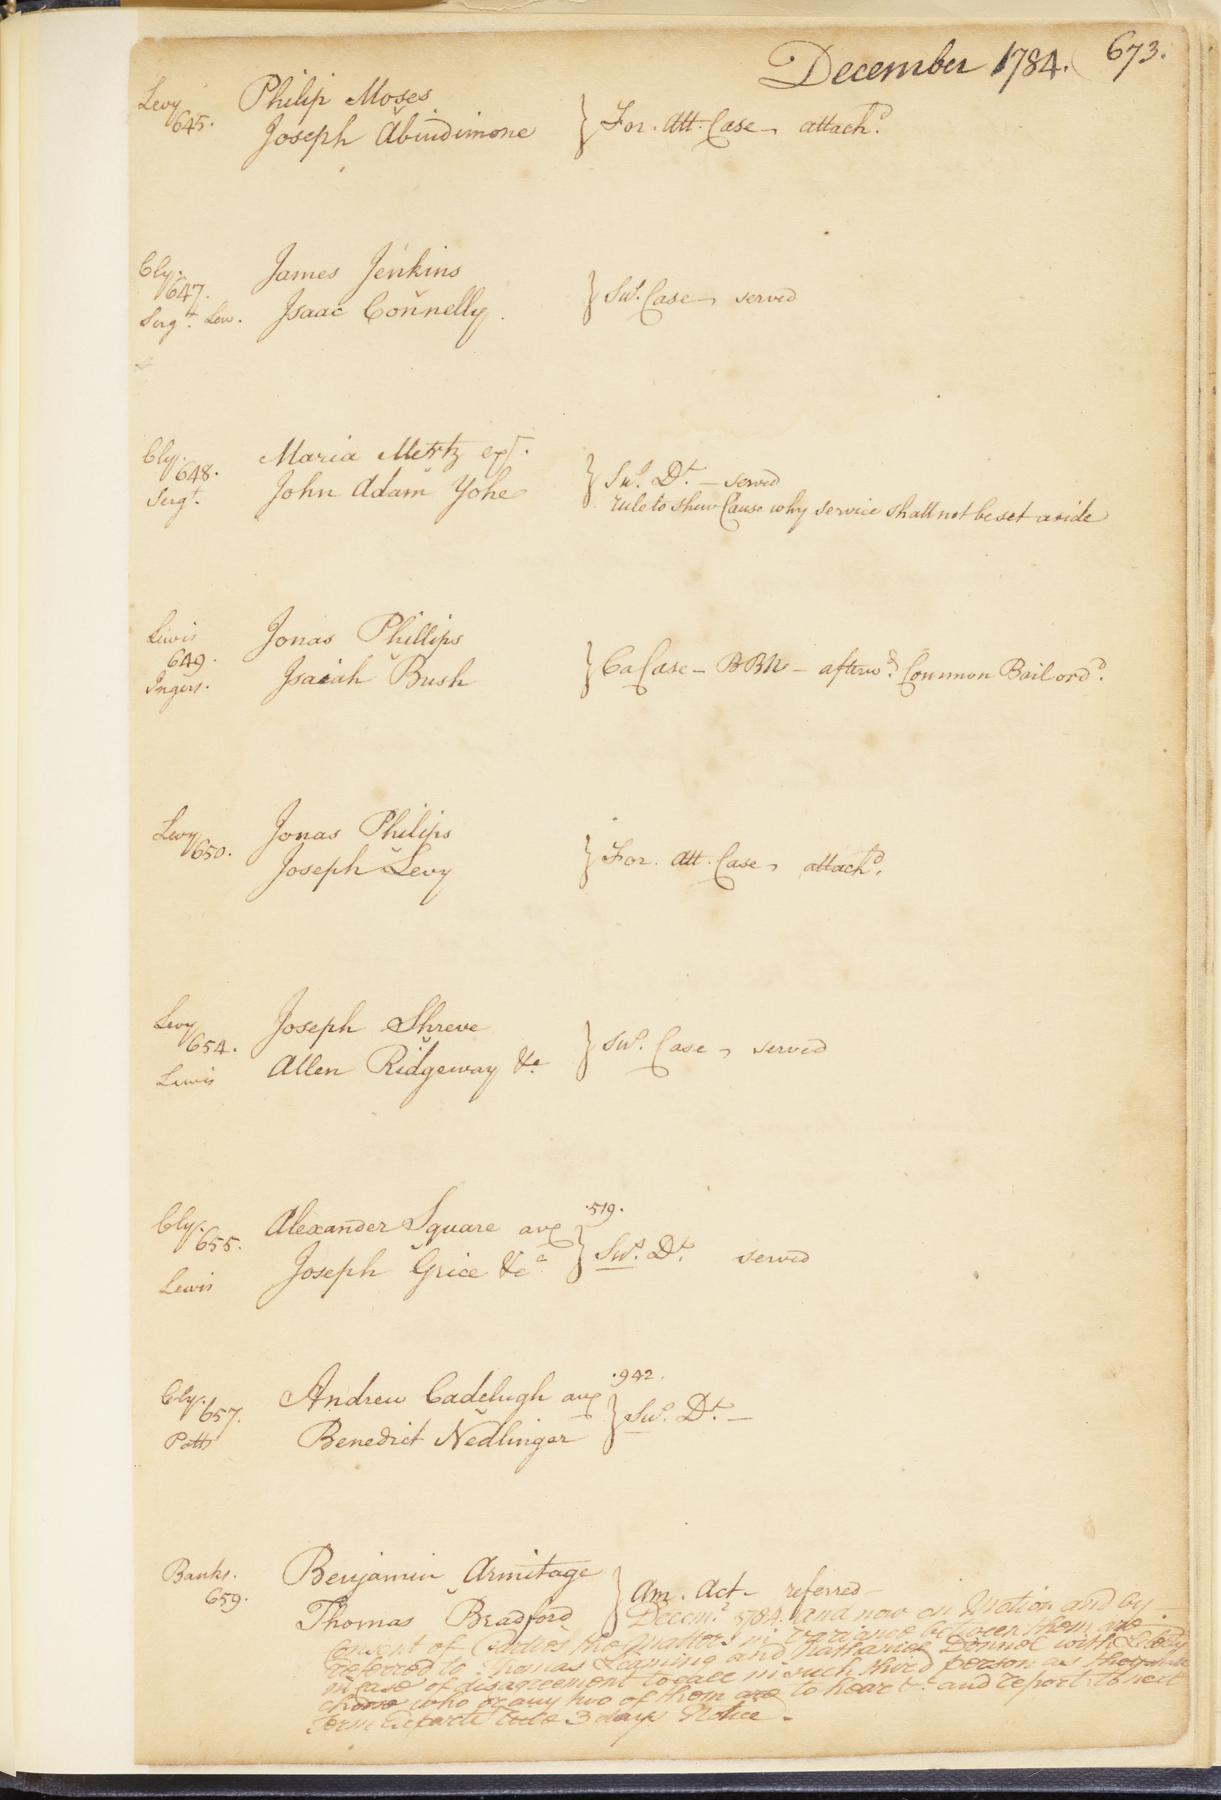 December 1784. 673.
Levy Philip Moses
645. v
Joseph Abindimone } For. Att. Case attachd.
Cly. James Jenkins
647. v
Sergt. Lew. Isaac Connelly. } Sus. Case served
Cly. Maria Mertz exr.
648. v
Sergt. John Adam Yohe } Sus. Dt. – served
rule to shew Cause why service shall not be set aside
Lewis Jonas Phillips
649. v
Ingers. Isaiah Bush } Ca Case – BBN – afterwds. Common Bail ord.
Levy Jonas Philips
650. v
Joseph Levy } For. Att. Case attachd.
Levy Joseph Shreve
654. v
Lewis Allen Ridgeway &c } Sus. Case served
Cly. Alexander Square 519.
655. v
Lewis Joseph Grice &ca } Sus. Dt. served
Cly. Andrew Cadehugh 942.
657. v
Potts Benedict Nedlinger } Sus. Dt. –
Banks. Benjamin Armitage
659. v
Thomas Bradford } Am. Act – referred –
Decemr. 1784. and now on Motion and by
Consent of Parties the matters in variance between them are
referred to Thomas Leaming and Nathaniel Donnel with Liberty
in case of disagreement to call in such third person as they shall
choose who or any two of them are to hear &c and report to next
Term Exparte rule 3 days Notice.